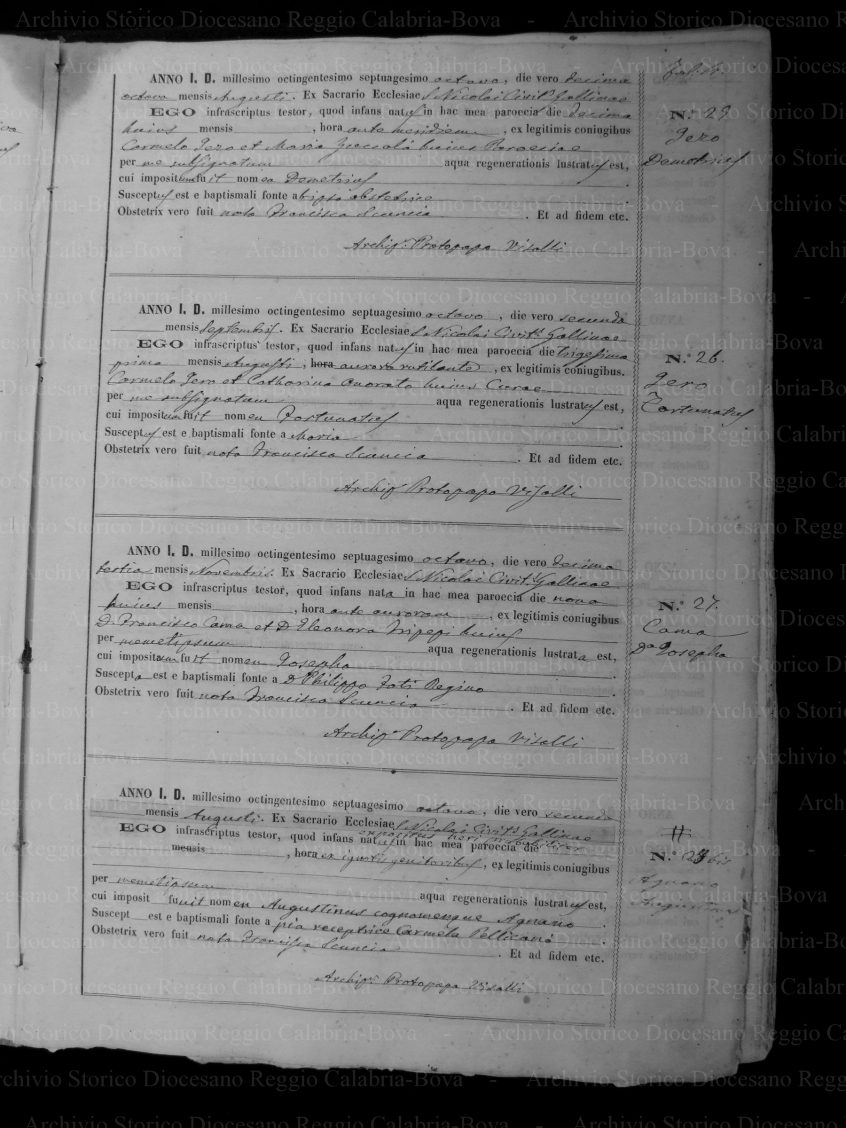 ANNO I. D. millesimo octingentesimo septuagesimo octavo, die vero decima
octava mensis Augusti. Ex Sacrario Ecclesiae S. Nicolai Civit.s Gallinae
EGO infrascriptus testor, quod infans natus in hac mea paroecia die decima
huius mensis , hora ante meridiem , ex legitimis coniugibus
Carmelo Jero et Maria huius Paroeciae
per me subsignatum aqua regenerationis lustratus est,
cui impositum fuit nomen Demetrius .
Susceptus est e baptismali fonte ab ipsa obstetrice
Obstetrix vero fuit nota Francisca Scuncia . Et ad fidem etc.
Archip.r Protopapa Visalli
N.° 29
Jero
Demetrius
ANNO I. D. millesimo octingentesimo septuagesimo octavo , die vero secunda
mensis Septembris. Ex Sacrario Ecclesiae S. Nicolai Civit.s Gallinae
EGO infrascriptus testor, quod infans natus in hac mea paroecia die trigesima
prima mensis Augusti , hora aurora rutilante , ex legitimis coniugibus.
Carmelo Jero et Catharina Onorato huius Curae
per me subsignatum aqua regenerationis lustratus est,
cui impositum fuit nomen Fortunatus .
Susceptus est e baptismali fonte a Maria
Obstetrix vero fuit nota Francisca Scuncia . Et ad fidem etc.
Archip.r Protopapa Visalli
N.° 26.
Jero
Fortunatus
ANNO I. D. millesimo octingentesimo septuagesimo octavo, die vero decima
tertia mensis Novembris. Ex Sacrario Ecclesiae S. Nicolai Civit.s Gallinae
EGO infrascriptus testor, quod infans nata in hac mea paroecia die nona
huius mensis , hora ante auroram , ex legitimis coniugibus
D. Francisco Cama et D. Eleonora Tripepi huius
per memetipsum aqua regenerationis lustrata est,
cui impositum fuit nomen Josepha .
Suscepta est e baptismali fonte a D. Philippo Foti Regino
Obstetrix vero fuit nota Francisca Scuncia . Et ad fidem etc.
Archip.r Protopapa Visalli
N.° 27.
Cama
D.a Josepha
ANNO I. D. millesimo octingentesimo septuagesimo octavo , die vero secunda
mensis Augusti. Ex Sacrario Ecclesiae S. Nicolai Civit.s Gallinae
expositus heri
EGO infrascriptus testor, quod infans natus in hac mea paroecia die
mensis , hora ex ignotis genitoribus , ex legitimis coniugibus
per memetipsum aqua regenerationis lustratus est,
cui imposit fuit nomen Augustinus cognomenque Agnano .
Suscept est e baptismali fonte a pia receptrice Carmela Pellicanò .
Obstetrix vero fuit nota Francisca Scuncia . Et ad fidem etc.
Archip.r Protopapa Visalli
N.° 23 bis
Agnano
Augustinus
Archivio Storico Diocesano Reggio Calabria-Bova